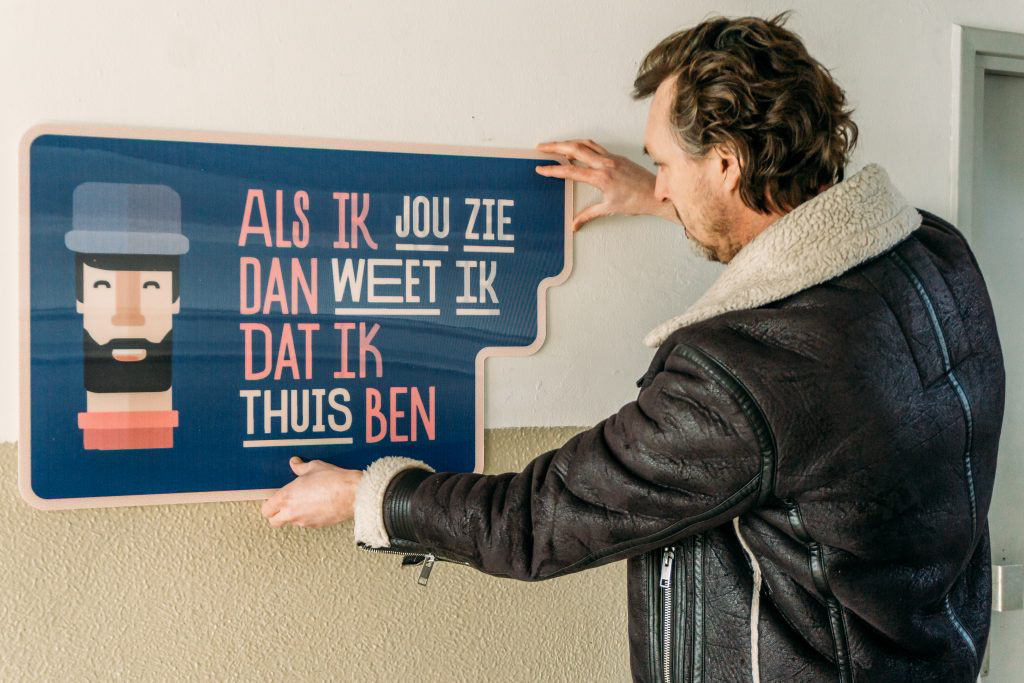 ALS IK JOU ZIE
DAN WEET IK
DAT IK
THUIS BEN